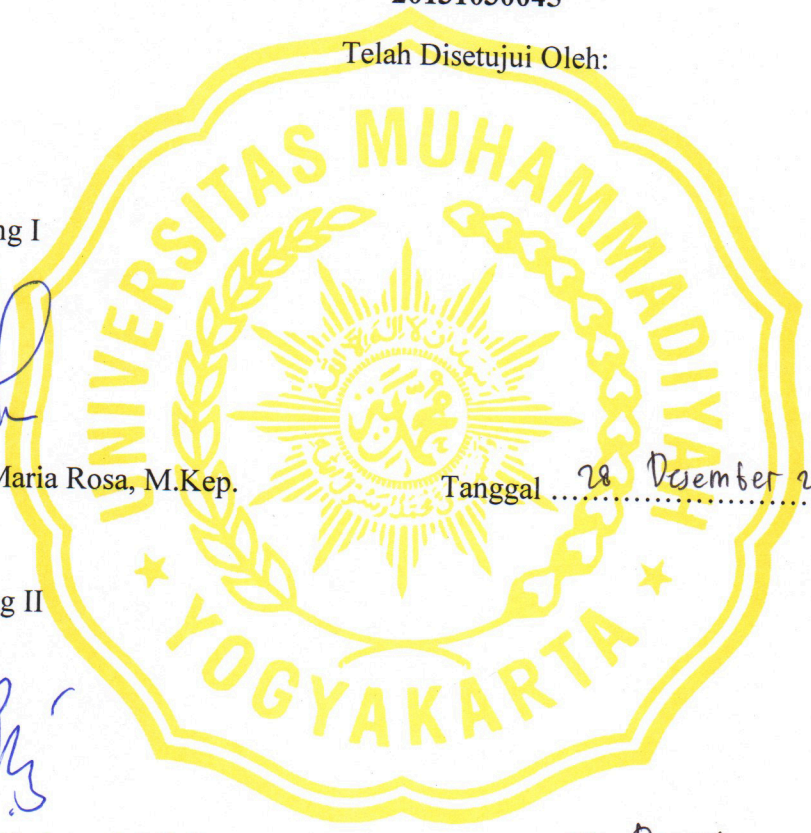 Telah Disetujui Oleh:
UNIVERSITAS MUHAMMADIYAH
YOGYAKARTA
ng I
Maria Rosa, M.Kep.
Tanggal ...28 Desember 2
g II